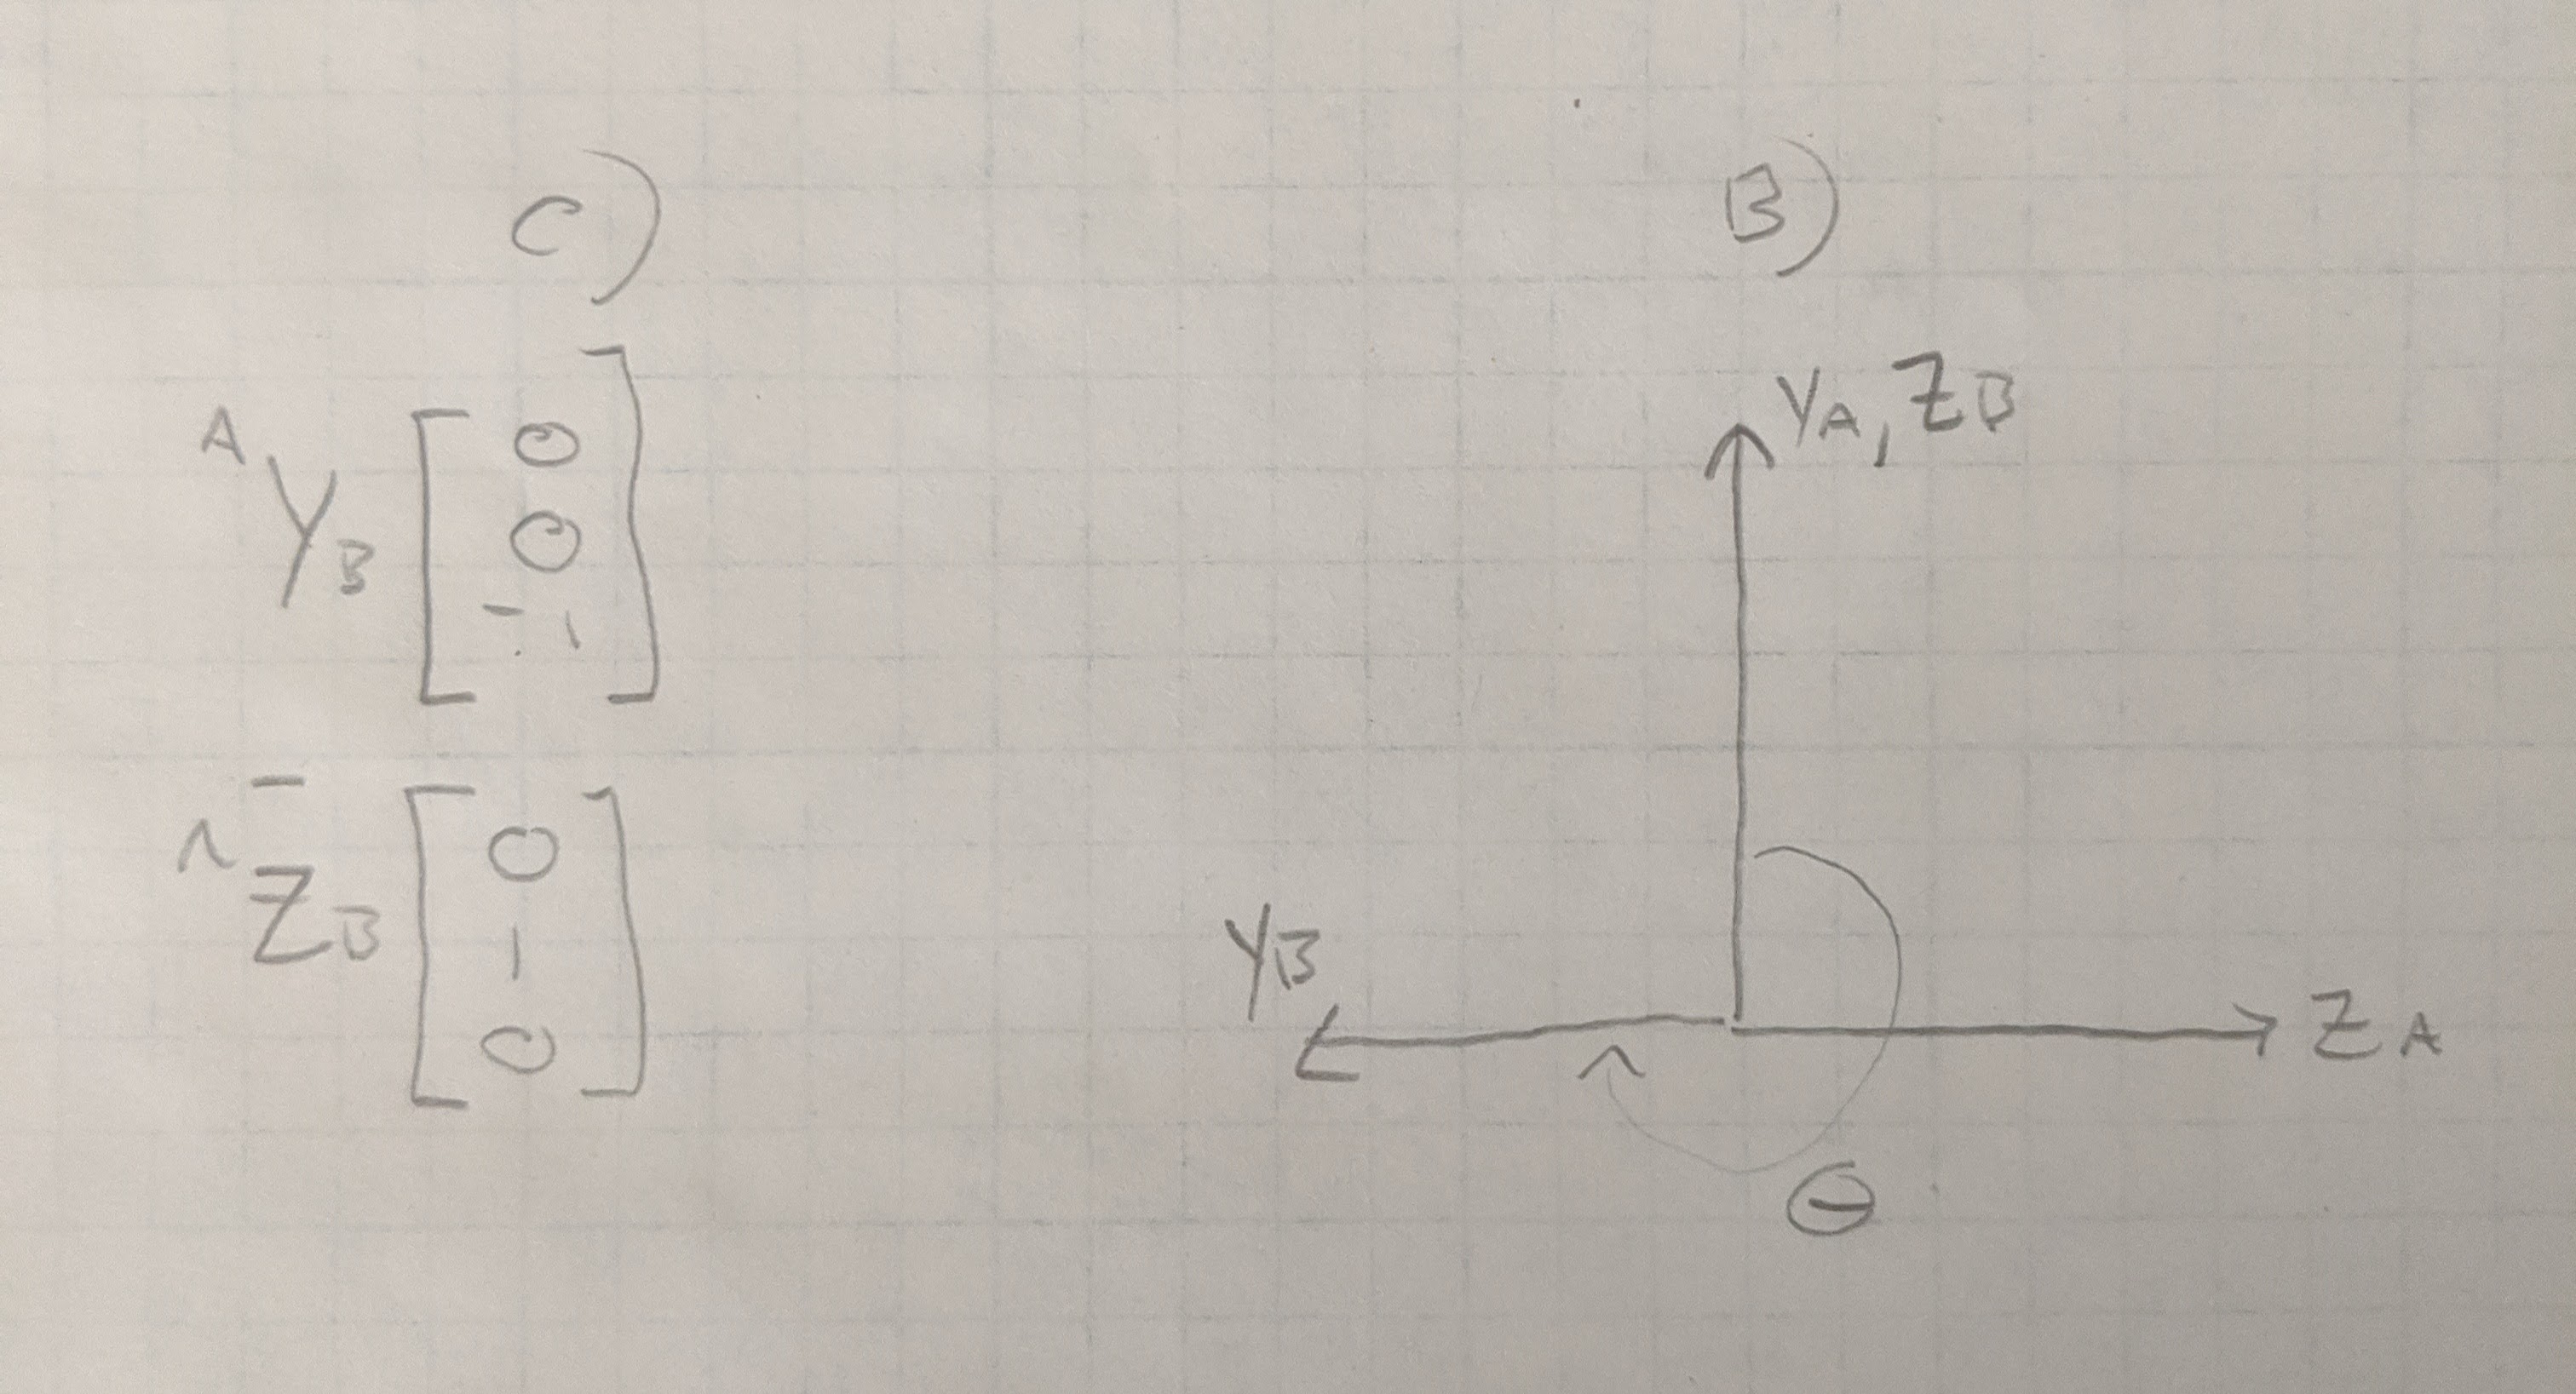 C)
A
YB [ 0
0
-1 ]
ZB [ 0
1
0 ]
B)
YA, ZB
YB
ZA
Θ